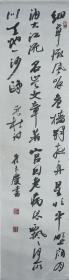 細草微風岸危檣獨夜舟星垂平野闊月
湧大江流名豈文章著官因老病休飄飄何所
似天地一沙鷗